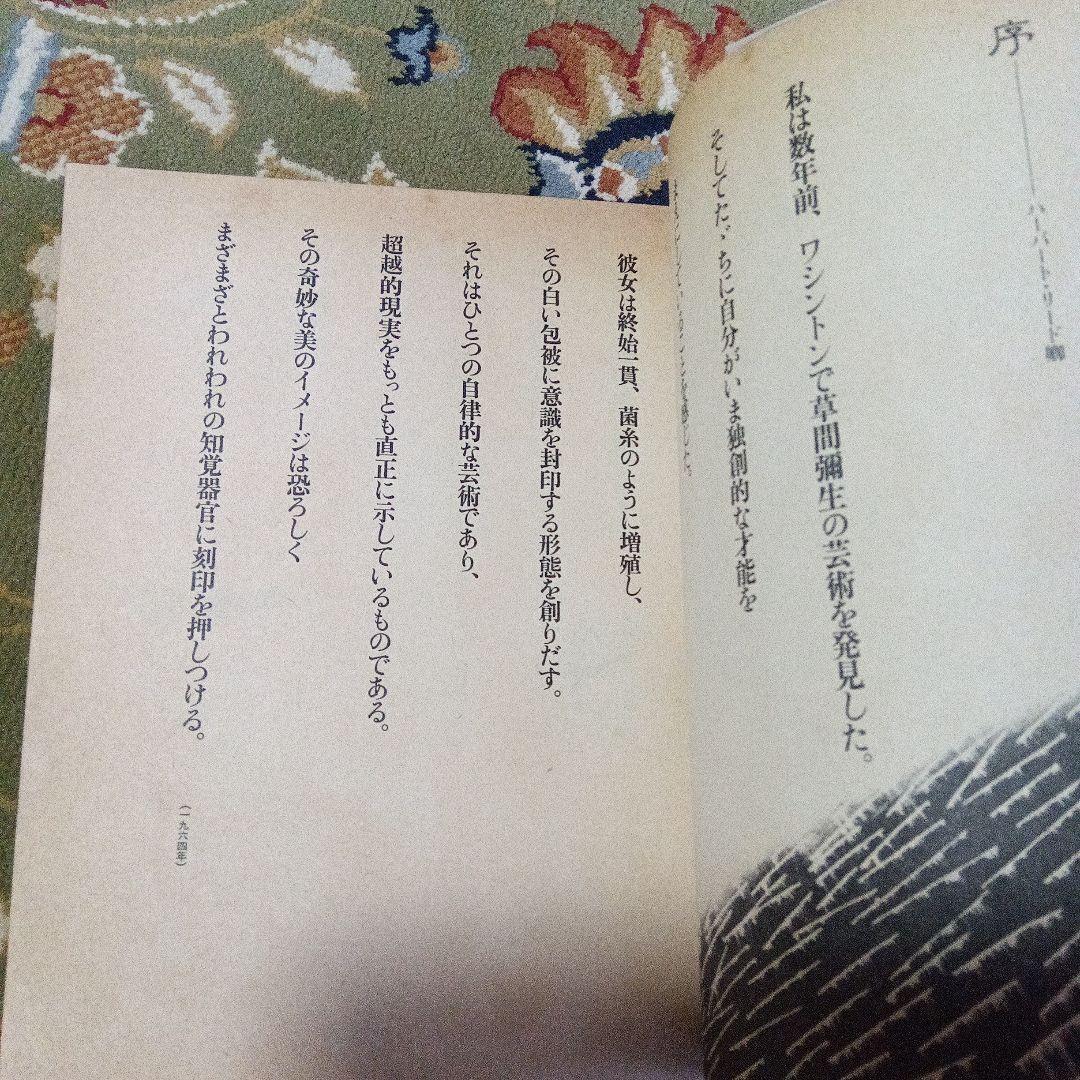 序
ハーバート・リード卿
私は数年前、ワシントンで草間彌生の芸術を発見した。
そしてたゞちに自分がいま独創的な才能を
彼女は終始一貫、菌糸のように増殖し、
その白い包被に意識を封印する形態を創りだす。
それはひとつの自律的な芸術であり、
超越的現実をもっとも直正に示しているものである。
その奇妙な美のイメージは恐ろしく
まざまざとわれわれの知覚器官に刻印を押しつける。
(一九六四年)